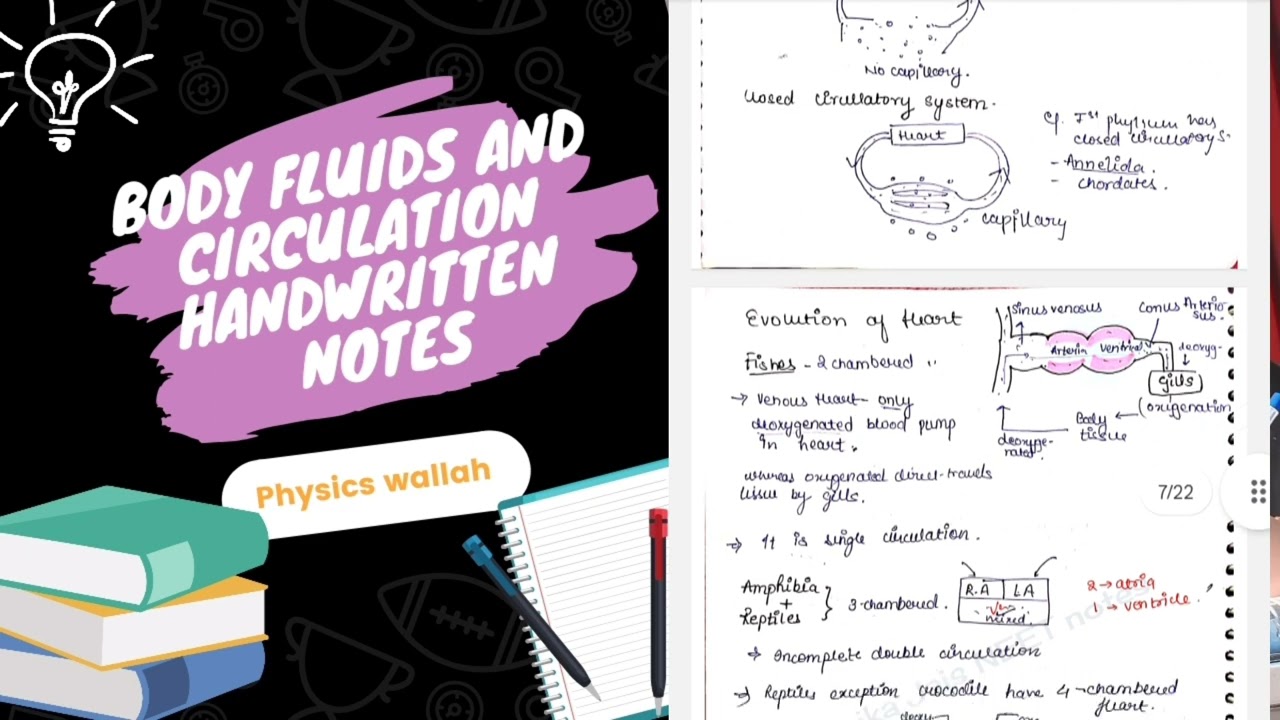 BODY FLUIDS AND
CIRCULATION
HANDWRITTEN
NOTES
Physics wallah
No capillary.
Closed circulatory system.
Heart
capillary
eg. Ist phylum has
closed circulatory S.
- Annelida.
- chordates.
Evolution of Heart
Fishes - 2 chambered
→ Venous Heart- only
deoxygenated blood pump
in heart.
whereas oxygenated direct-travels
tissue by gills.
⇒ It is single circulation.
Sinus venosus
Conus Arterio
sus.
Arteria
deoxyg-
gills
(oxigenation
Body
tissue
deoxyge-
rated.
7/22
Amphibia
+
Reptiles
3-chambered.
R.A
LA
mixed
2 → atria
1 → ventricle.
→ Incomplete double circulation
→ Reptiles exception crocodile have 4-chambered
Heart.